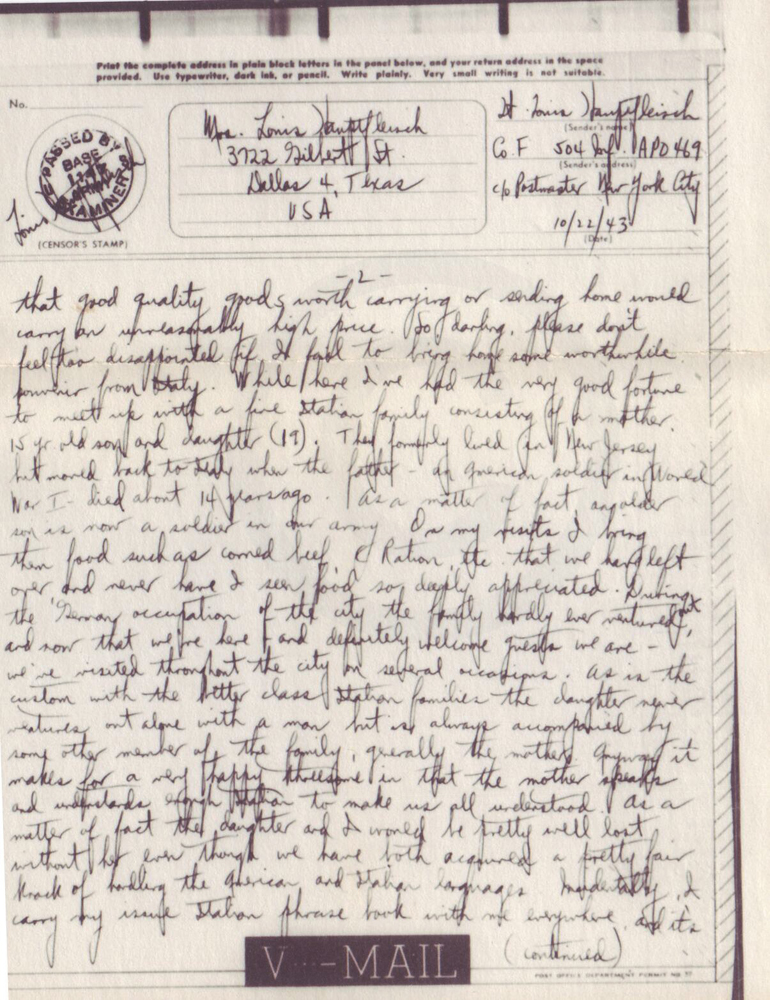 Print the complete address in plain block letters in the panel below, and your return address in the space
provided. Use typewriter, dark ink, or pencil. Write plainly. Very small writing is not suitable.
No.
PASSED BY
BASE
ARMY EXAMINER
(CENSOR'S STAMP)
Mrs. Louis Hauptfleisch
3722 Gilbert St.
Dallas 4, Texas
USA
Lt. Louis Hauptfleisch
(Sender's name)
Co. F 504 Inf. APO 469
(Sender's address)
c/o Postmaster New York City
10/22/43
(Date)
-2-
that good quality goods worth carrying or sending home would
carry an unreasonably high price. So darling, please don't
feel too disappointed if I fail to bring home some worthwhile
souvenir from Italy. While here I've had the very good fortune
to meet up with a fine Italian family consisting of a mother,
15 yr. old son and daughter (19). They formerly lived in New Jersey
but moved back to Italy when the father - an American soldier in World
War I - died about 14 years ago. As a matter of fact, an older
son is now a soldier in our army. On my visits I bring
them food such as corned beef, C Ration, etc. that we have left
over and never have I seen food so deeply appreciated. During
the German occupation of the city the family hardly ever ventured out,
and now that we're here - and definitely welcome guests we are -
we've visited throughout the city on several occasions. As is the
custom with the better class Italian families the daughter never
ventures out alone with a man but is always accompanied by
some other member of the family, generally the mother. Anyway it
makes for a very happy threesome in that the mother speaks
and understands enough Italian to make us all understood. As a
matter of fact the daughter and I would be pretty well lost
without her even though we have both acquired a pretty fair
knack of handling the American and Italian languages. Incidentally, I
carry my issue Italian phrase book with me everywhere, and it's
(continued)
V···-MAIL
POST OFFICE DEPARTMENT PERMIT NO.